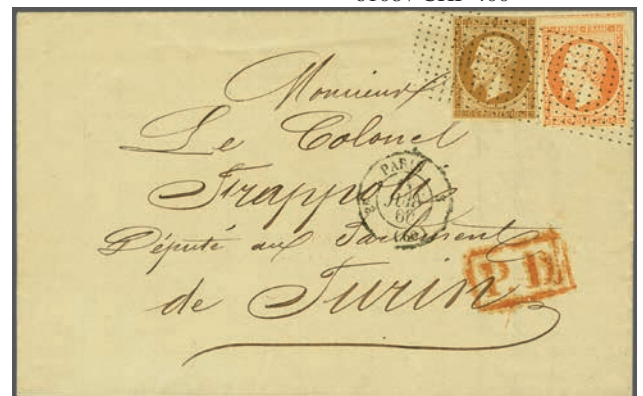 Monsieur
Le Colonel
Frappolli
Député au Parlement
de Turin
PARIS
JUIN
60
(60)
P.D.